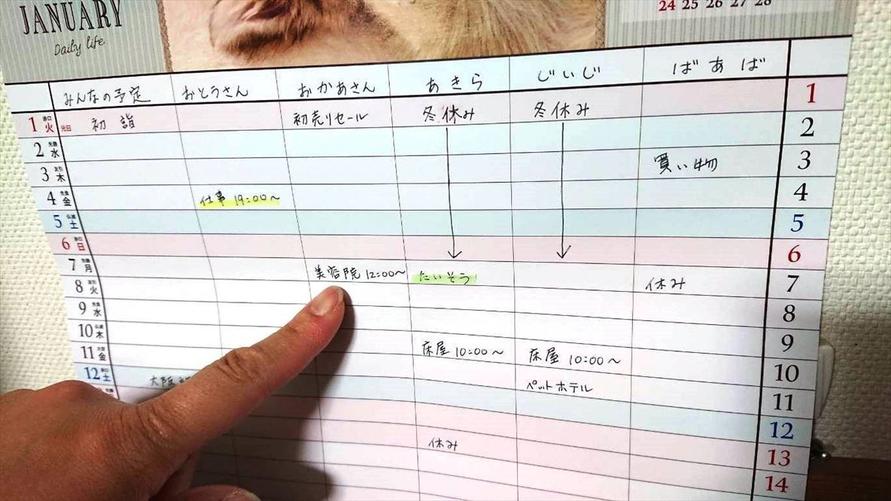 JANUARY
Daily life
24 25 26 27 28
みんなの予定 おとうさん おかあさん あきら じいじ ばあば
1 火 元日 初詣 初売りセール 冬休み 冬休み 1
2 水 2
3 木 買い物 3
4 金 仕事 19:00〜 4
5 土 5
6 日 6
7 月 美容院 12:00〜 たいそう 休み 7
8 火 8
9 水 床屋 10:00〜 床屋 10:00〜 9
10 木 ペットホテル 10
11 金 11
12 土 大阪 12
休み 13
14